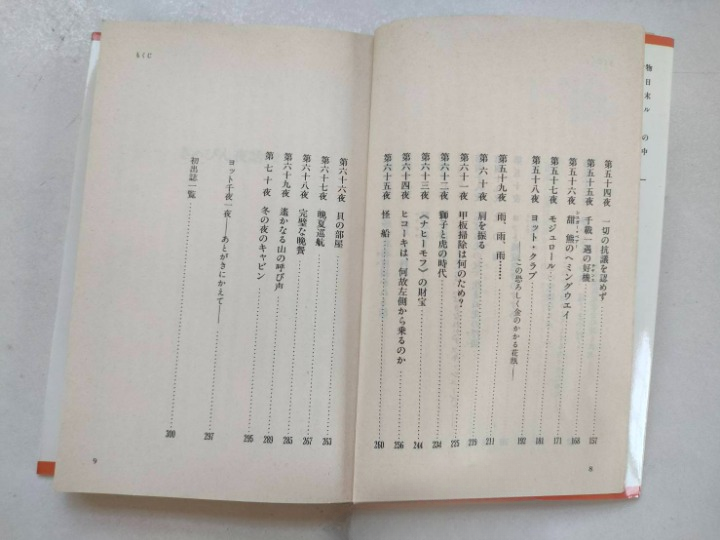 第五十四夜 一切の抗議を認めず 157
第五十五夜 千載一遇の好機 168
第五十六夜 甜熊のヘミングウエイ 171
第五十七夜 モジュロール 181
第五十八夜 ヨット・クラブ 192
——この恐ろしく金のかかる花瓶——
第五十九夜 雨、雨、雨…… 211
第六十夜 肩を振る 219
第六十一夜 甲板掃除は何のため? 225
第六十二夜 獅子と虎の時代 234
第六十三夜 《ナヒーモフ》の財宝 244
第六十四夜 ヒコーキは、何故左側から乗るのか 256
第六十五夜 怪船 260
8
もくじ
第六十六夜 貝の部屋 263
第六十七夜 晩夏巡航 267
第六十八夜 完璧な晩餐 285
第六十九夜 遙かなる山の呼び声 289
第七十夜 冬の夜のキャビン 295
ヨット千夜一夜——あとがきにかえて—— 297
初出誌一覧 300
9